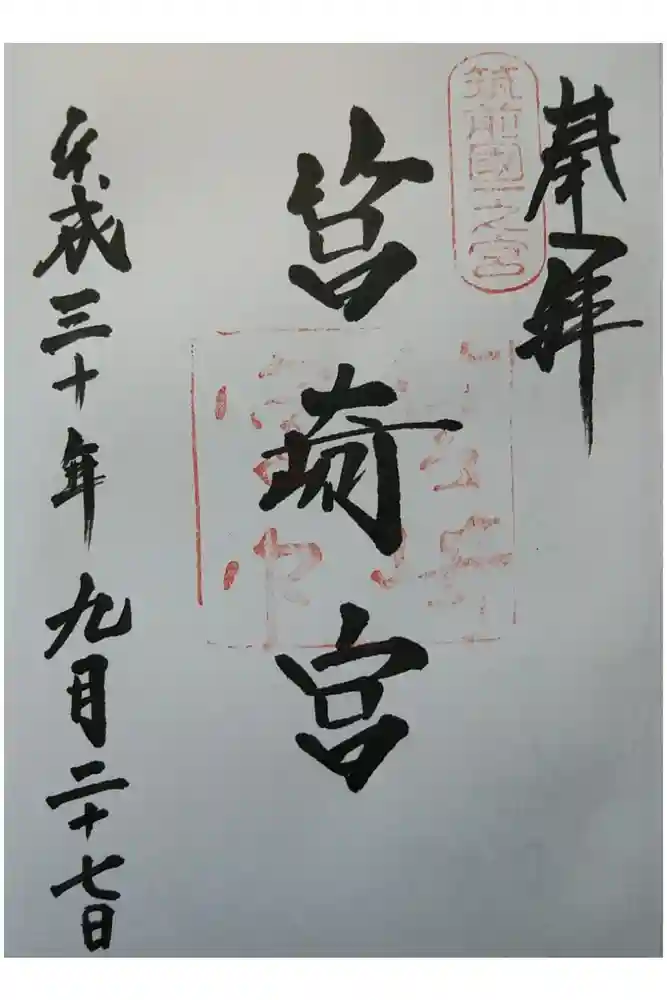 奉拝
筑前國一之宮
筥崎宮
平成三十年九月二十七日